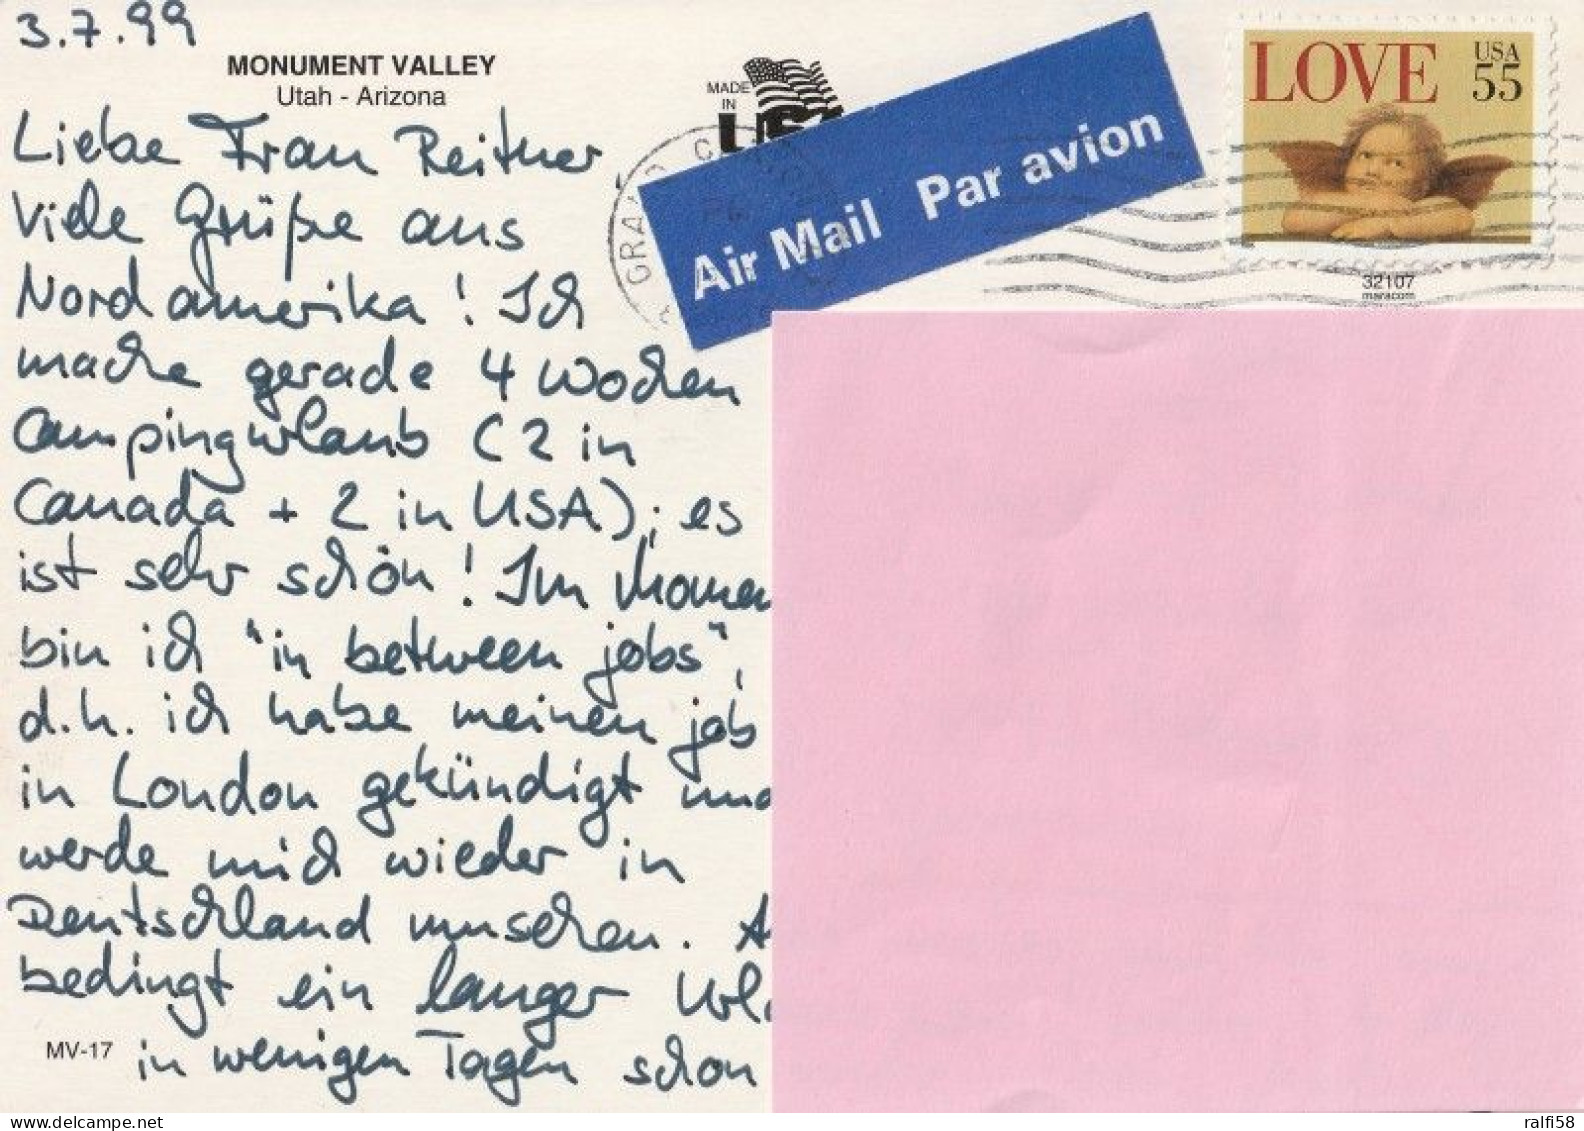 3.7.99
MONUMENT VALLEY
Utah - Arizona
MADE
IN
USA
Air Mail Par avion
LOVE USA
55
32107
maracom
Liebe Frau Reitner
Viele Grüße aus
Nordamerika! Ich
mache gerade 4 Wochen
Campingurlaub (2 in
Canada + 2 in USA); es
ist sehr schön! Im Momen
bin ich "in between jobs",
d.h. ich habe meinen job
in London gekündigt und
werde mich wieder in
Deutschland umsehen. A
bedingt ein langer Url
MV-17 in wenigen Tagen schon
delcampe.net
ralfi58